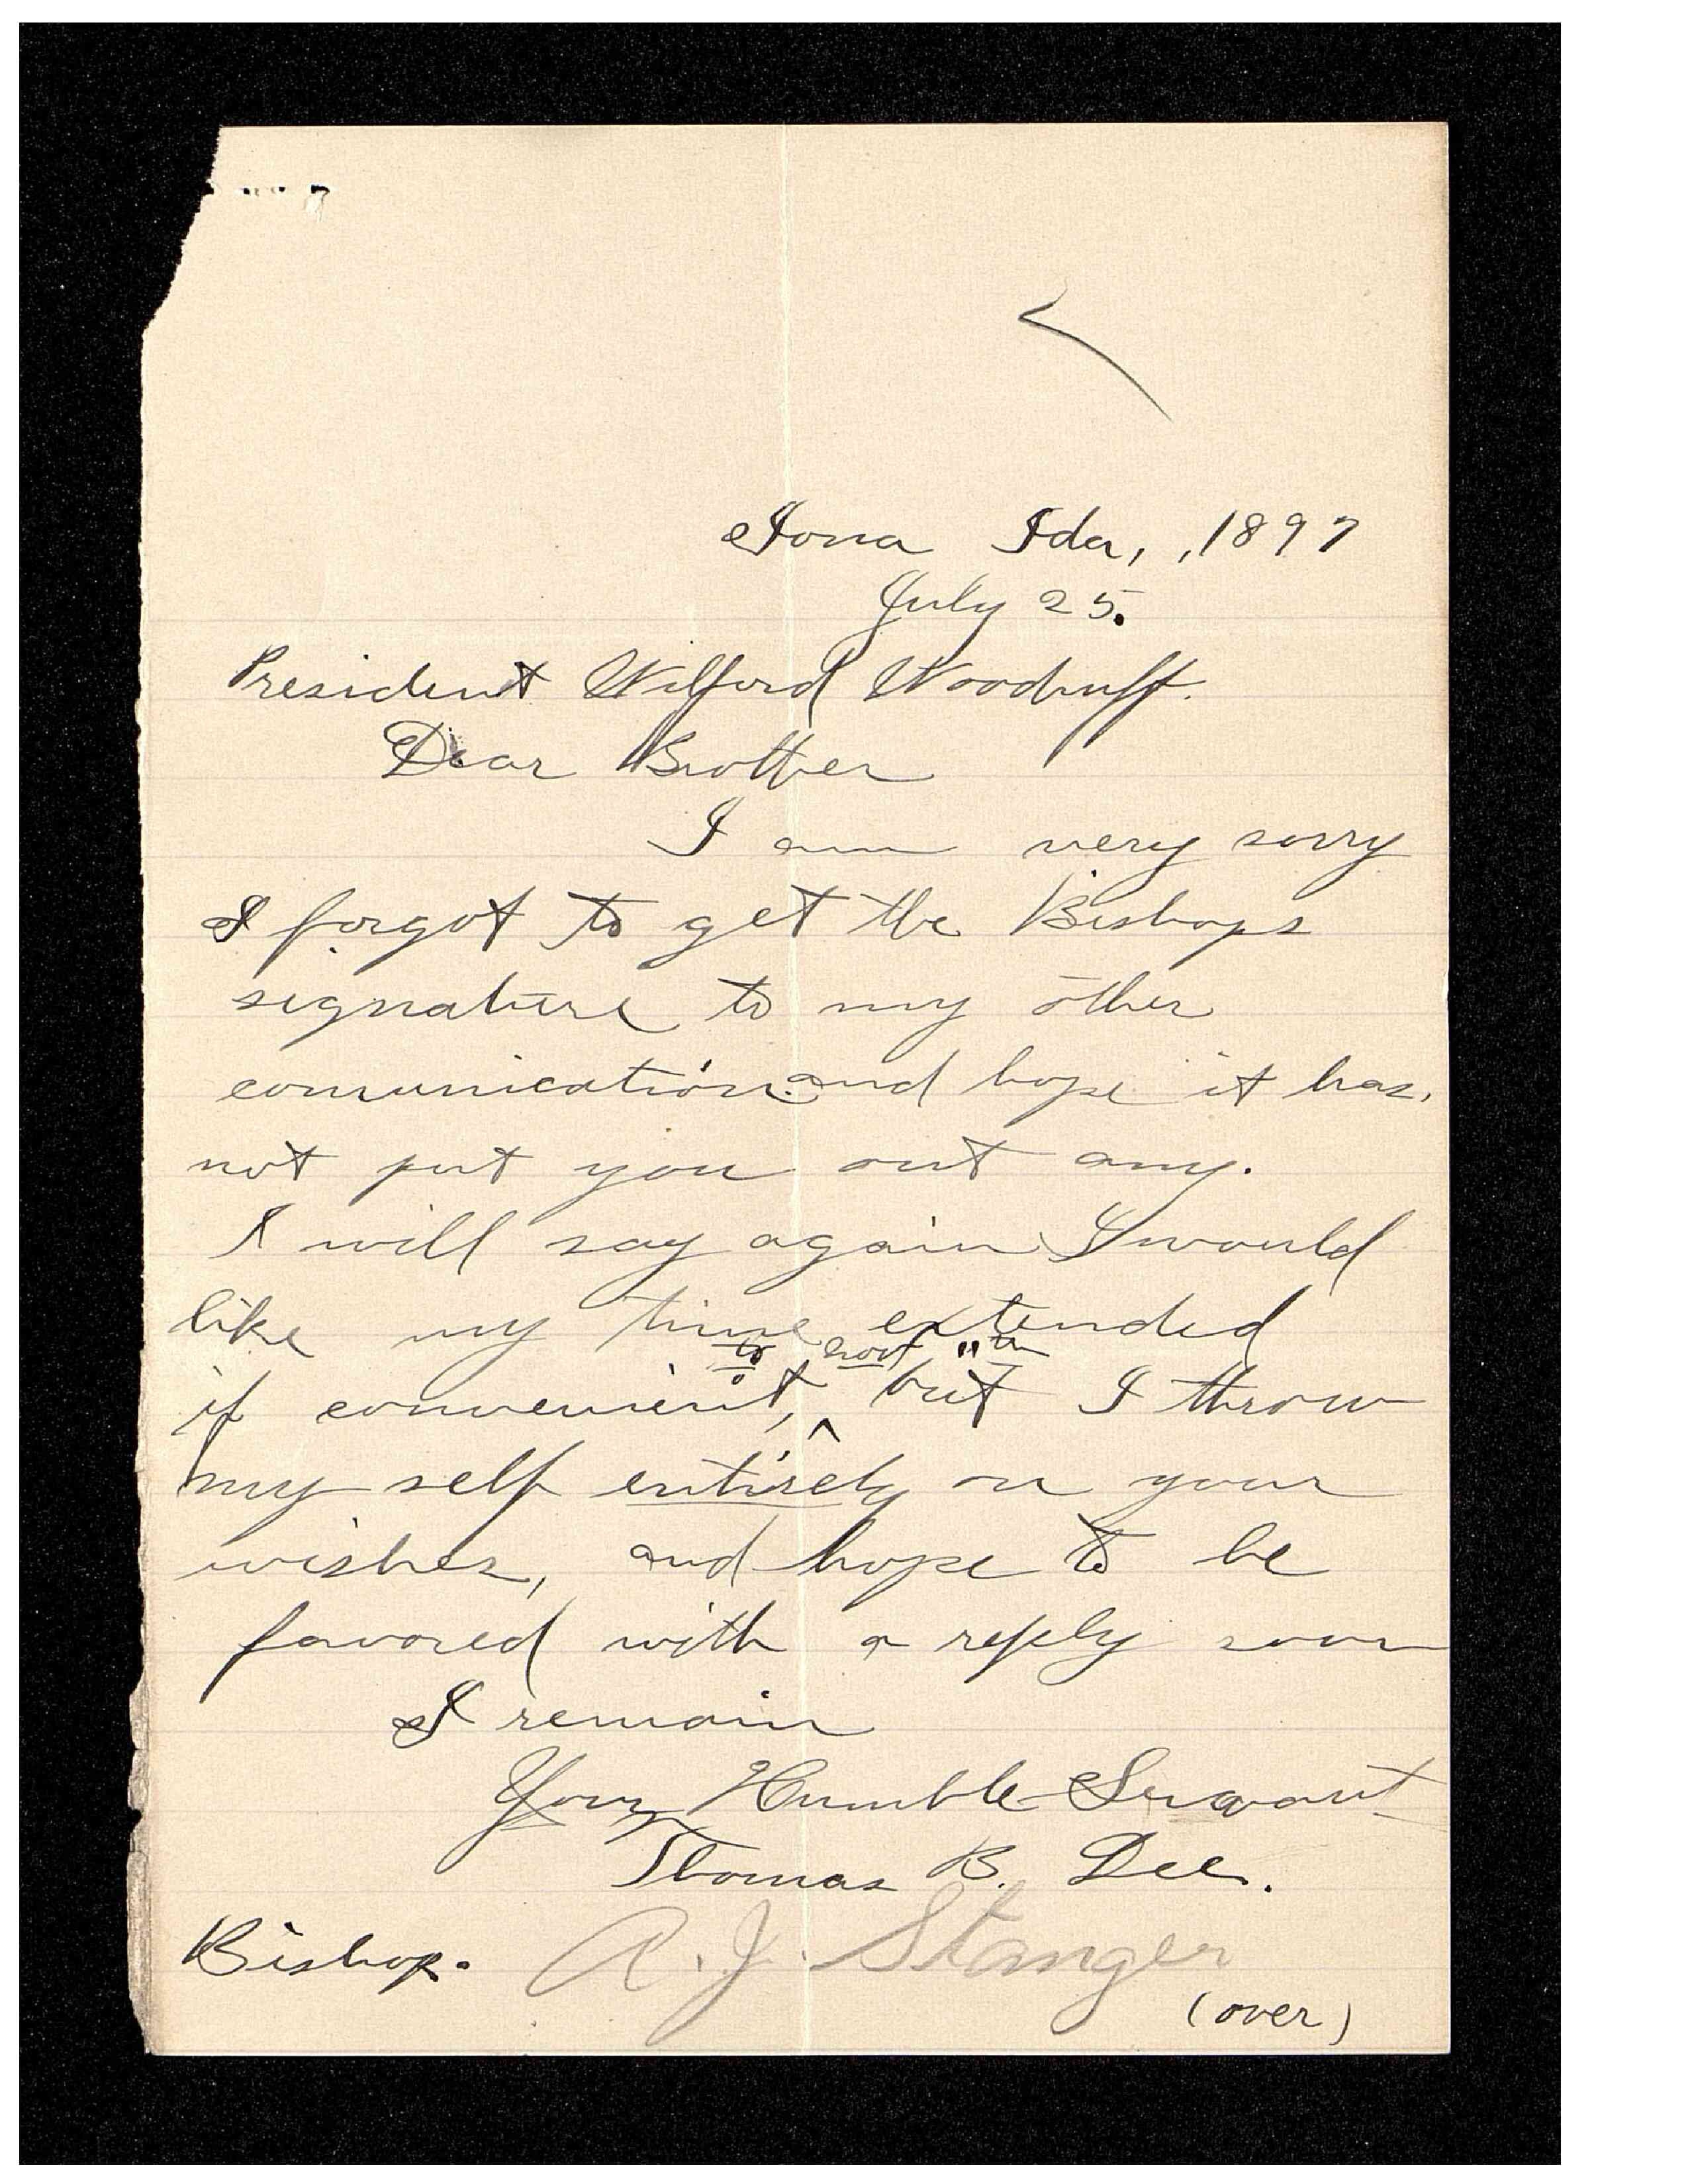 Iona Ida, ,1897
July 25.
President Wilford Woodruff.
Dear Brother
I am very sorry
I forgot to get the Bishops
signature to my other
comunication and hope it has,
not put you out any.
I will say again I would
like my time extended
to
if convenient, but I throw
my self entirely on your
wishes, and hope to be
favored with a reply soon
I remain
Your Humble Servant
Thomas B. Dee.
Bishop. A. J. Stanger
(over)